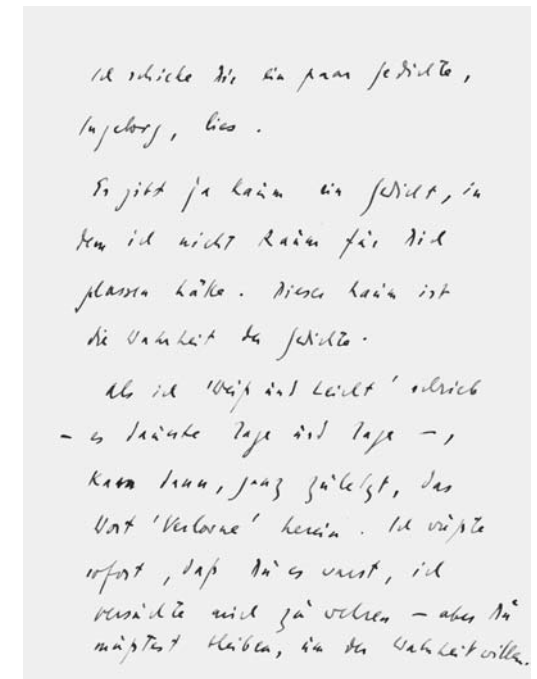 Ich schicke Dir ein paar Gedichte,
Ingeborg, lies.
Es gibt ja kaum ein Gedicht, in
dem ich nicht Raum für Dich
gelassen hätte. Dieser Raum ist
die Wahrheit der Gedichte.
Als ich 'Weiß und Leicht' schrieb
– es dauerte Tage und Tage –,
kam dann, ganz zuletzt, das
Wort 'Verlorne' herein. Ich wußte
sofort, daß Du es warst, ich
versuchte mich zu wehren – aber Du
mußtest bleiben, um der Wahrheit willen.